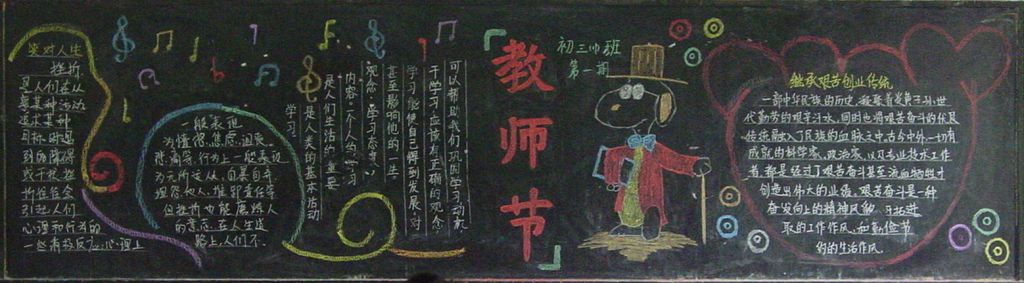 笑对人生
挫折
是人们在从
事某种活动
追求某种
目标时遇
到的障碍
或干扰挫
折往往会
引起人们
心理和行为的
一些有
心理上
一般表现
为惶恐、焦虑、沮丧、
行为上一般表现
为无所适从、自暴自弃
推卸责任等
但挫折也能磨炼人
的意志、在人生道
路上,人们不
学习
是人类的基本活动
是人们生活的重要
内容。个人的学习
观念(学习态度)
甚至影响他的一生
学习能使自己得到发展,对
于学习应该有正确的观念
可以帮助我们巩固学习动机
教师节
初三四班
第一期
继承艰苦创业传统
一部中华民族的历史,凝聚着炎黄子孙世
代勤劳的艰辛汗水,同时也将艰苦奋斗的优良
传统融入了民族的血脉之中。古今中外,一切有
成就的科学家、政治家、以及专业技术工作
者,都是经过了艰苦奋斗甚至流血牺牲才
创造出伟大的业绩。艰苦奋斗是一种
奋发向上的精神风貌、开拓进
取的工作作风、和勤俭节
约的生活作风。